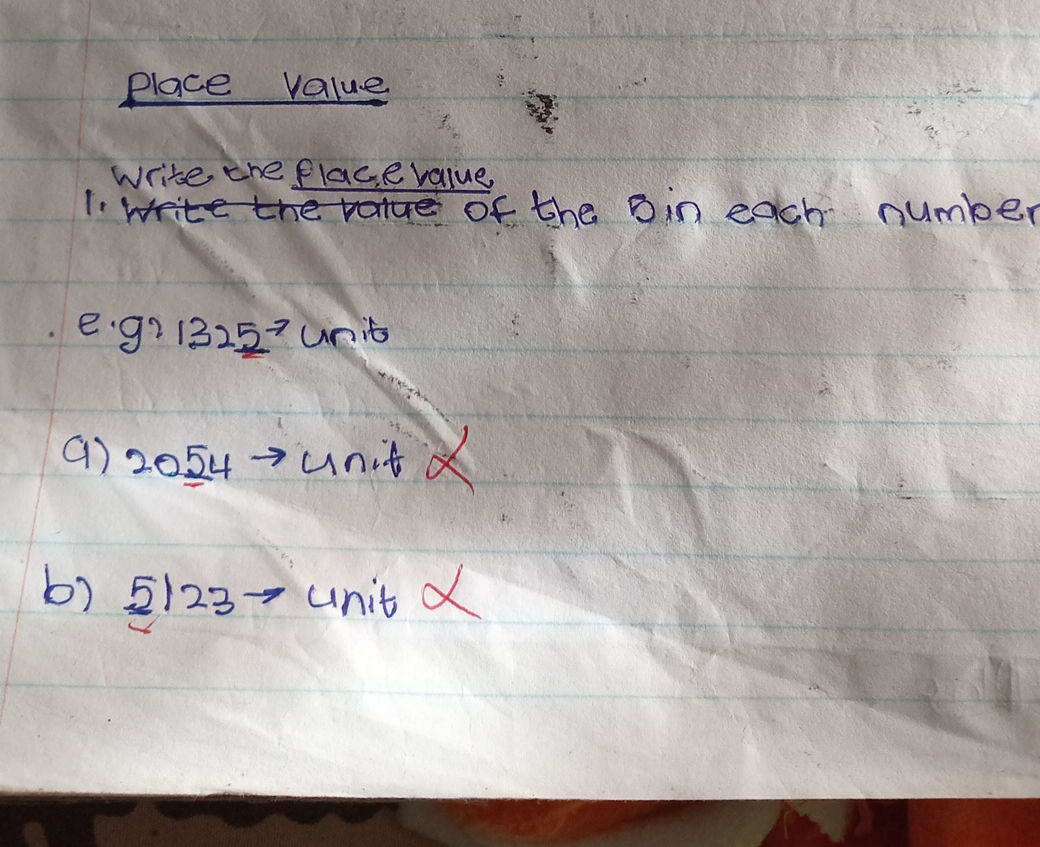 Place Value
Write the Place Value
1. Write the value of the 5 in each number
e.g? 1325 → unit
a) 2054 → unit X
b) 5123 → unit X